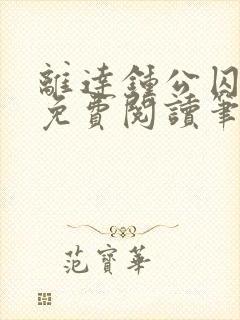 離達鍾公囚
免費閱讀筆
范寶華